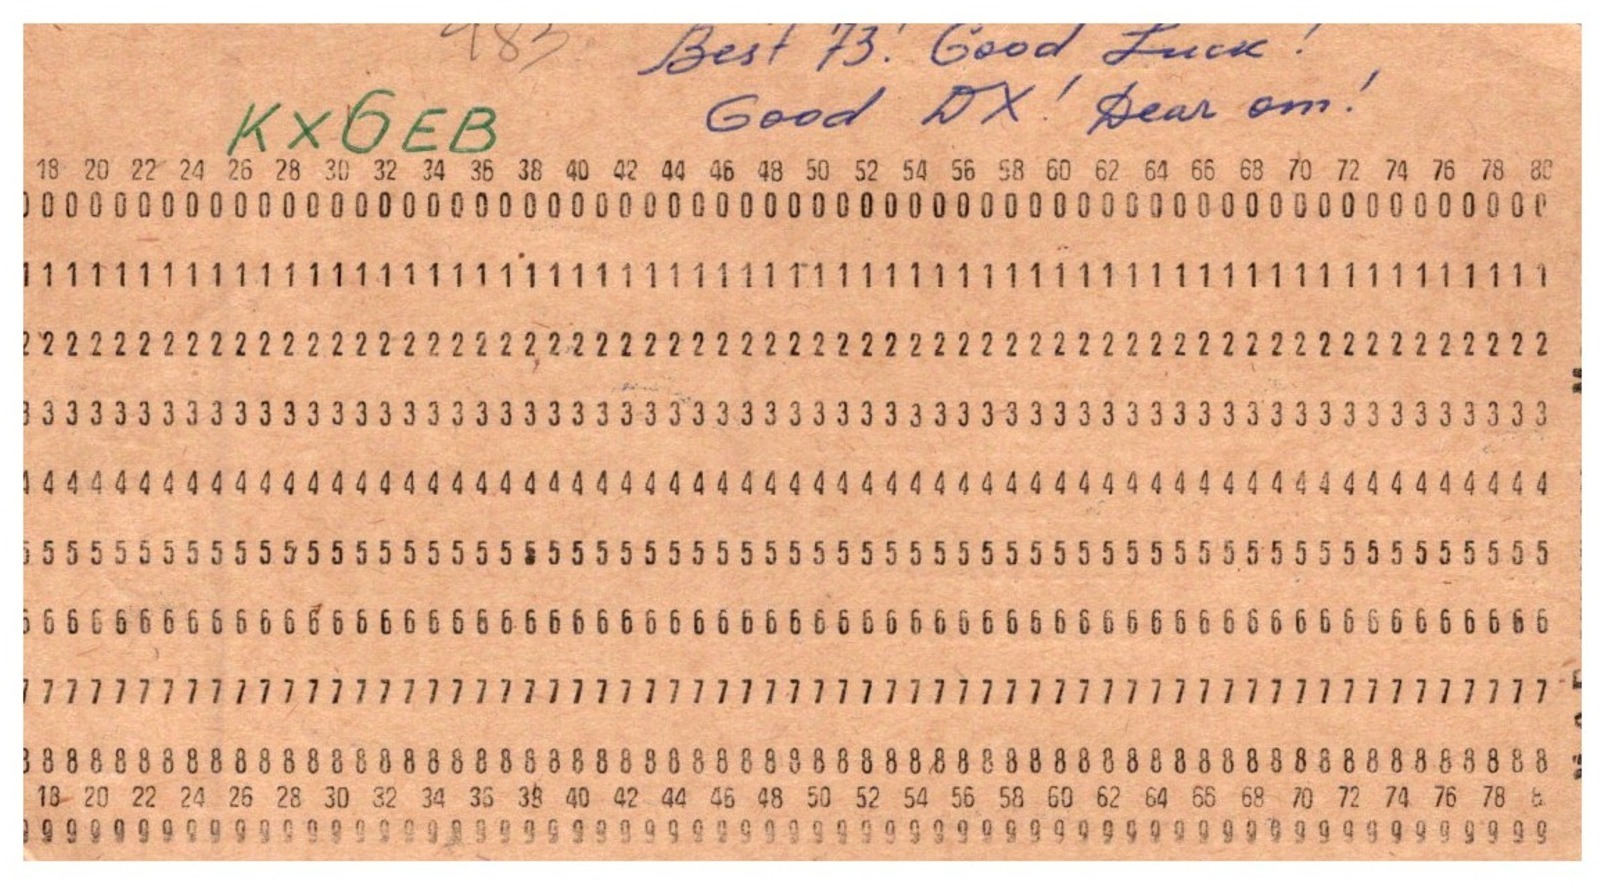 Best 73! Good Luck!
Good DX! Dear om!
KX6EB
18 20 22 24 26 28 30 32 34 36 38 40 42 44 46 48 50 52 54 56 58 60 62 64 66 68 70 72 74 76 78 80
0000000000000000000000000000000000000000000000000000000000000000
1111111111111111111111111111111111111111111111111111111111111111
2222222222222222222222222222222222222222222222222222222222222222
3333333333333333333333333333333333333333333333333333333333333333
4444444444444444444444444444444444444444444444444444444444444444
5555555555555555555555555555555555555555555555555555555555555555
6666666666666666666666666666666666666666666666666666666666666666
7777777777777777777777777777777777777777777777777777777777777777
8888888888888888888888888888888888888888888888888888888888888888
18 20 22 24 26 28 30 32 34 36 38 40 42 44 46 48 50 52 54 56 58 60 62 64 66 68 70 72 74 76 78
9999999999999999999999999999999999999999999999999999999999999999